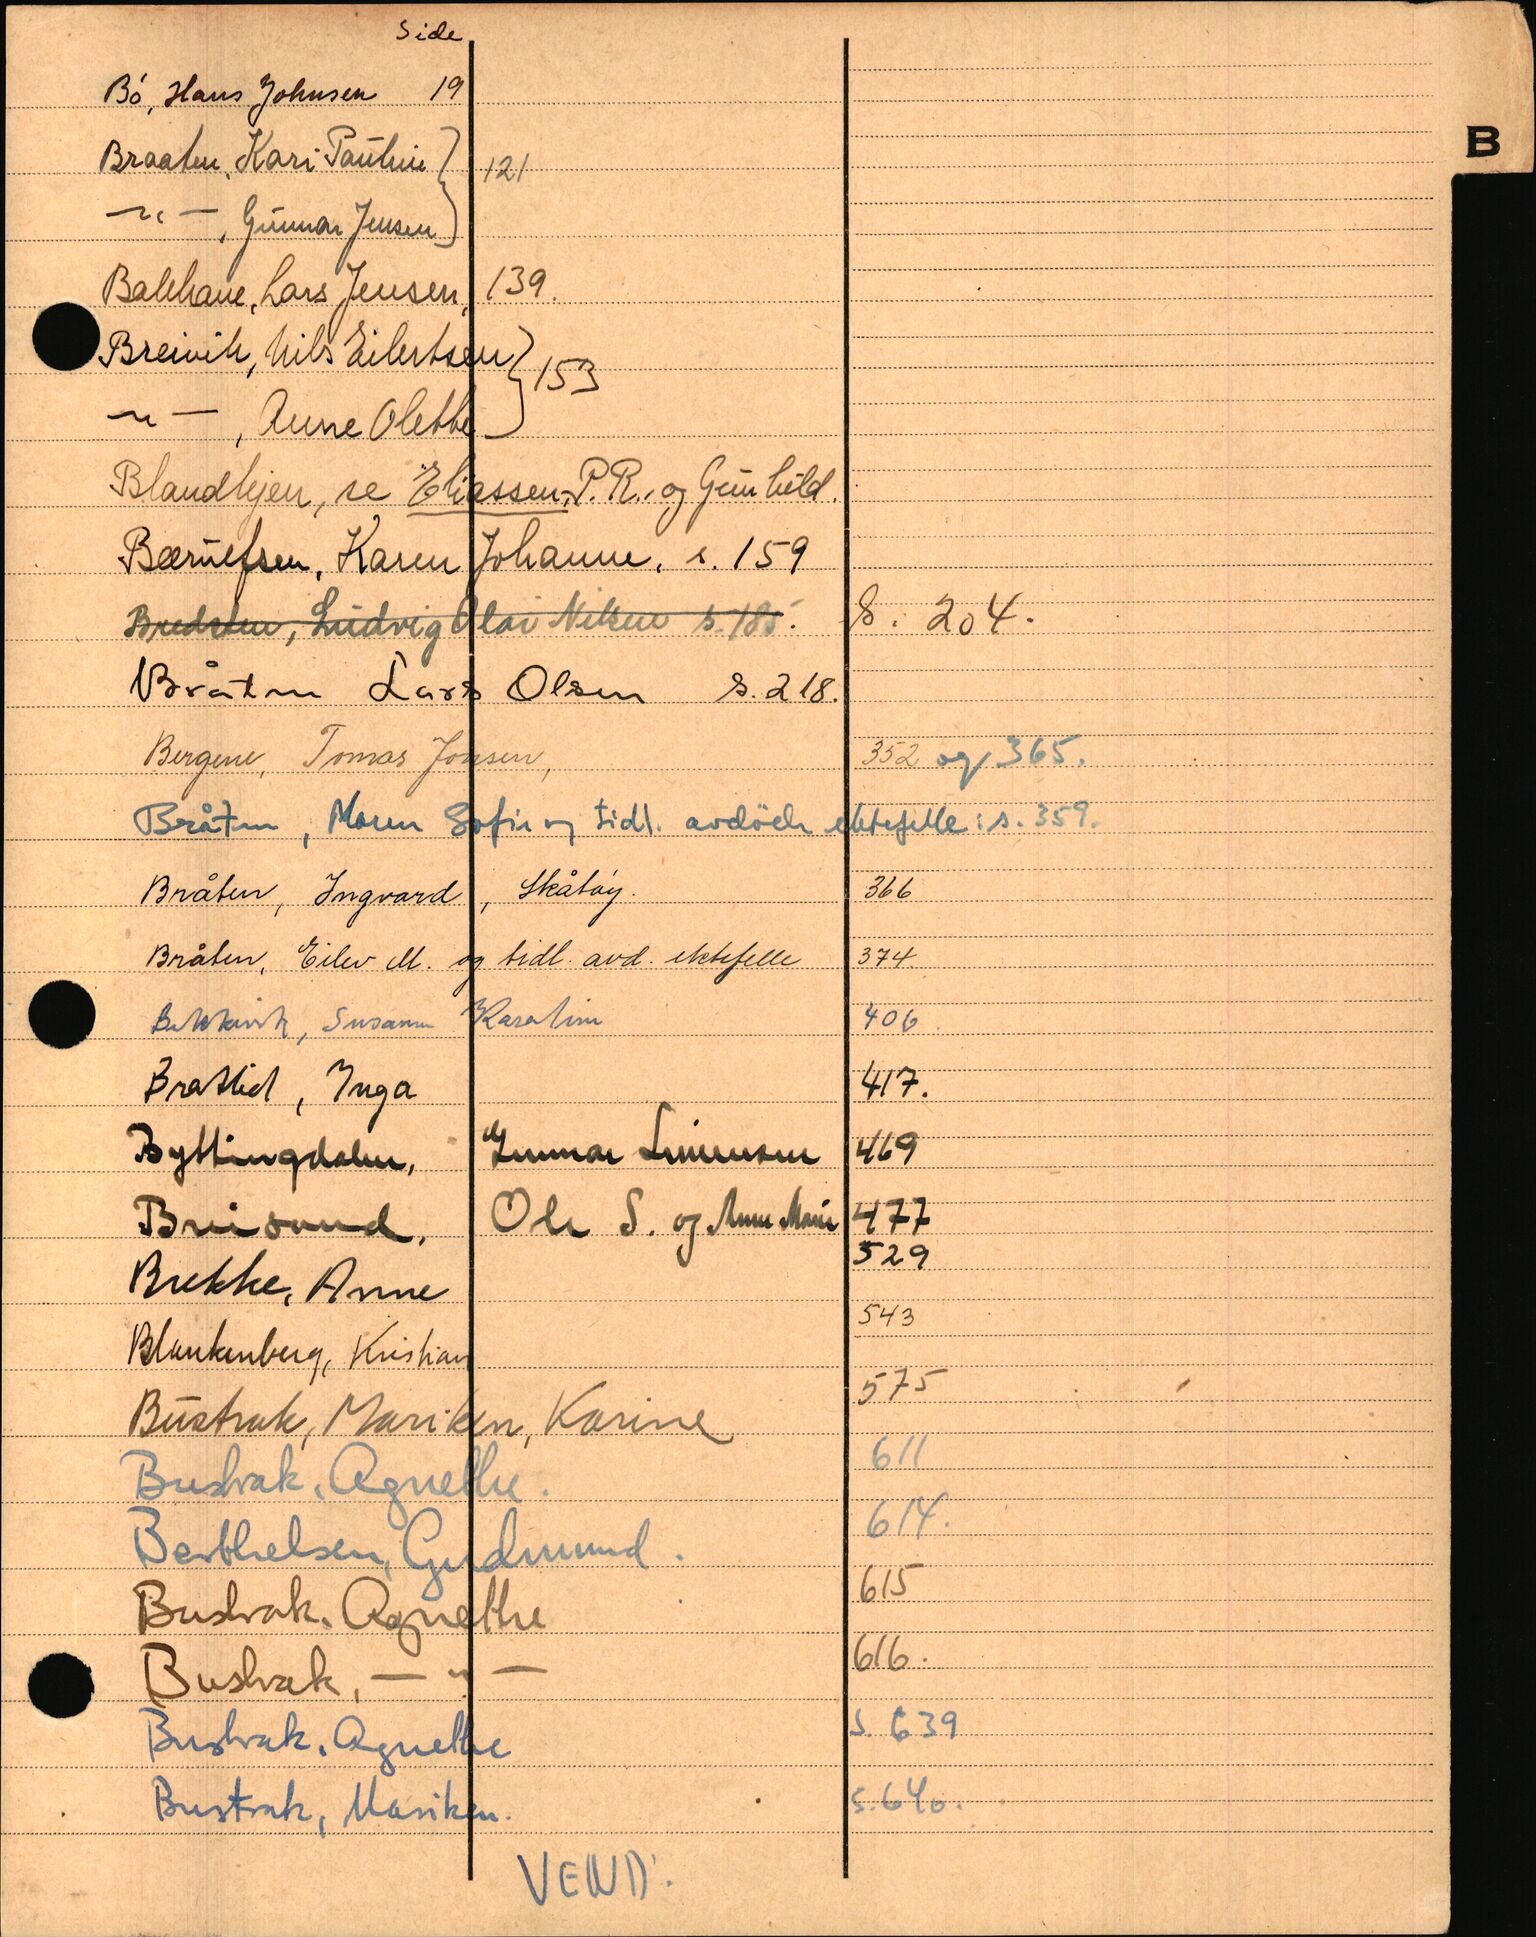 Side
Bö, Hans Johnsen 19
B
Braaten, Kari Pauline } 121
—"—, Gunnar Jensen }
Bakhane, Lars Jensen, 139.
Breivik, Nils Eilertsen } 153
—"—, Anne Olethe }
Blandkjen, se Eliassen, P. R. og Gunhild.
Bærulfsen, Karen Johanne, s. 159
Bredsten, Ludvig Olai Nilsen s. 185. S. 204.
Bråten Lars Olsen s. 218.
Bergene, Tomas Jonsen, 352 og 365.
Bråten, Maren Sofie og tidl. avdöde ektefelle: s. 359.
Bråten, Ingvard, Skåtöy. 366
Bråten, Eilev M. og tidl. avd. ektefelle 374
Susanne Karoline 406
Brattlid, Inga 417.
Byttingdalen, Gunnar Simonsen 469
Breisund, Ole S. og Anne Marie 477
529
Brekke, Anne
543
Blankenberg, Kristian
575
Bustrak, Mariken, Karine
611
Bustrak, Agnethe.
614.
Berthelsen, Gudmund.
615
Bustrak, Agnethe
616.
Bustrak, —"—
Bustrak, Agnethe s. 639
Bustrak, Mariken. s. 640.
VEND.